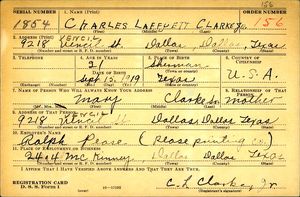 156
SERIAL NUMBER 1. NAME (Print) ORDER NUMBER
1854 CHARLES LAFEYETT CLARKE Jr. 156
2. ADDRESS (Print)
VENCIL
9218 Vencil St. Dallas, Dallas, Texas
3. TELEPHONE 4. AGE IN YEARS 5. PLACE OF BIRTH 6. COUNTRY OF CITIZENSHIP
21 Sherman
DATE OF BIRTH
Sept. 15, 1919 Texas U.S.A.
7. NAME OF PERSON WHO WILL ALWAYS KNOW YOUR ADDRESS 8. RELATIONSHIP OF THAT PERSON
Mary Clarke mother
9. ADDRESS OF THAT PERSON
VENCIL
9218 St. Dallas Dallas Texas
10. EMPLOYER'S NAME
Ralph Pease (Pease printing co.)
11. PLACE OF EMPLOYMENT OR BUSINESS
2404 McKinney Dallas Dallas Texas
I AFFIRM THAT I HAVE VERIFIED ABOVE ANSWERS AND THAT THEY ARE TRUE.
REGISTRATION CARD
D. S. S. Form 1
C. L. Clarke, Jr